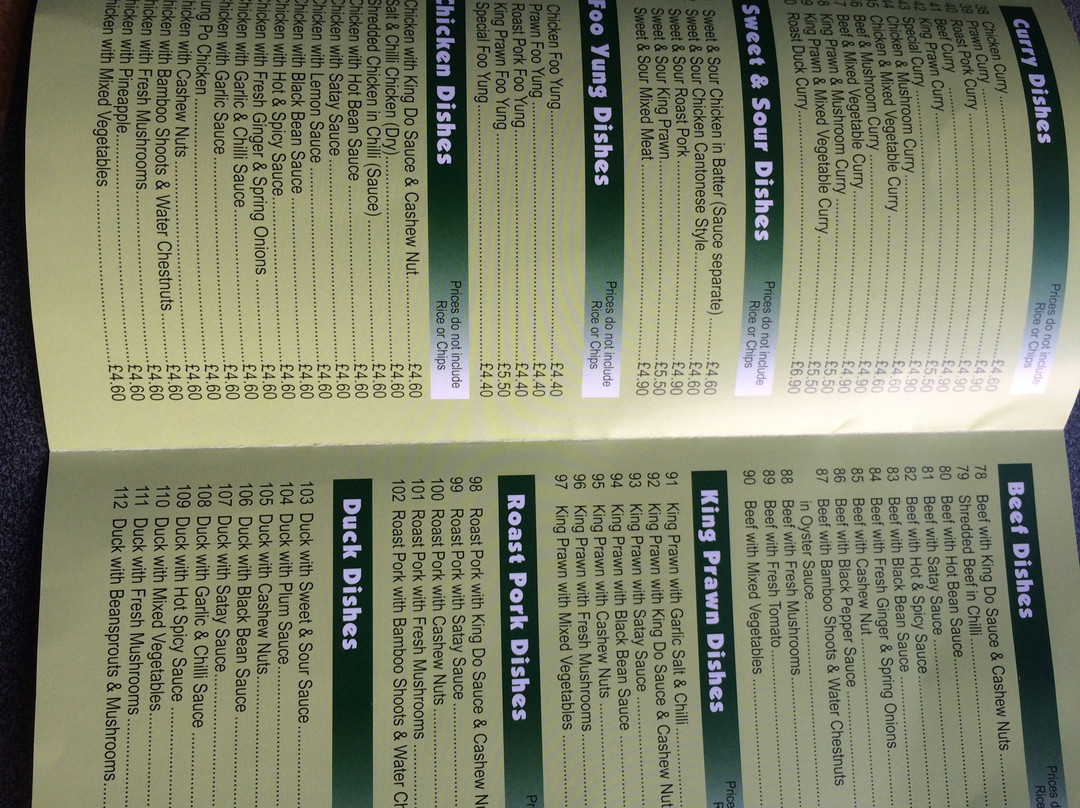 Curry Dishes
Prices do not include
Rice or Chips
38 Chicken Curry £4.60
39 Prawn Curry £4.90
40 Roast Pork Curry £4.90
41 Beef Curry £4.90
42 King Prawn Curry £5.50
43 Special Curry £4.90
44 Chicken & Mushroom Curry £4.60
5 Chicken & Mixed Vegetable Curry £4.60
6 Beef & Mushroom Curry £4.90
7 Beef & Mixed Vegetable Curry £4.90
8 King Prawn & Mushroom Curry £5.50
9 King Prawn & Mixed Vegetable Curry £5.50
0 Roast Duck Curry £6.90
Sweet & Sour Dishes
Prices do not include
Rice or Chips
Sweet & Sour Chicken in Batter (Sauce separate) £4.60
Sweet & Sour Chicken Cantonese Style £4.60
Sweet & Sour Roast Pork £4.90
Sweet & Sour King Prawn £5.50
Sweet & Sour Mixed Meat £4.90
Foo Yung Dishes
Prices do not include
Rice or Chips
Chicken Foo Yung £4.40
Prawn Foo Yung £4.40
Roast Pork Foo Yung £4.40
King Prawn Foo Yung £5.50
Special Foo Yung £4.40
Chicken Dishes
Prices do not include
Rice or Chips
Chicken with King Do Sauce & Cashew Nut £4.60
Salt & Chilli Chicken (Dry) £4.60
Shredded Chicken in Chilli (Sauce) £4.60
Chicken with Hot Bean Sauce £4.60
Chicken with Satay Sauce £4.60
Chicken with Lemon Sauce £4.60
Chicken with Black Bean Sauce £4.60
Chicken with Hot & Spicy Sauce £4.60
Chicken with Fresh Ginger & Spring Onions £4.60
Chicken with Garlic & Chilli Sauce £4.60
Chicken with Garlic Sauce £4.60
ung Po Chicken £4.60
hicken with Cashew Nuts £4.60
hicken with Bamboo Shoots & Water Chestnuts £4.60
hicken with Fresh Mushrooms £4.60
hicken with Pineapple £4.60
hicken with Mixed Vegetables £4.60
Beef Dishes
Prices d
Rice
78 Beef with King Do Sauce & Cashew Nuts
79 Shredded Beef in Chilli
80 Beef with Hot Bean Sauce
81 Beef with Satay Sauce
82 Beef with Hot & Spicy Sauce
83 Beef with Black Bean Sauce
84 Beef with Fresh Ginger & Spring Onions
85 Beef with Cashew Nut
86 Beef with Black Pepper Sauce
87 Beef with Bamboo Shoots & Water Chestnuts
in Oyster Sauce
88 Beef with Fresh Mushrooms
89 Beef with Fresh Tomato
90 Beef with Mixed Vegetables
King Prawn Dishes
Price
R
91 King Prawn with Garlic Salt & Chilli
92 King Prawn with King Do Sauce & Cashew Nut
93 King Prawn with Satay Sauce
94 King Prawn with Black Bean Sauce
95 King Prawn with Cashew Nuts
96 King Prawn with Fresh Mushrooms
97 King Prawn with Mixed Vegetables
Roast Pork Dishes
Pr
98 Roast Pork with King Do Sauce & Cashew N
99 Roast Pork with Satay Sauce
100 Roast Pork with Cashew Nuts
101 Roast Pork with Fresh Mushrooms
102 Roast Pork with Bamboo Shoots & Water Ch
Duck Dishes
103 Duck with Sweet & Sour Sauce
104 Duck with Plum Sauce
105 Duck with Cashew Nuts
106 Duck with Black Bean Sauce
107 Duck with Satay Sauce
108 Duck with Garlic & Chilli Sauce
109 Duck with Hot Spicy Sauce
110 Duck with Mixed Vegetables
111 Duck with Fresh Mushrooms
112 Duck with Beansprouts & Mushrooms